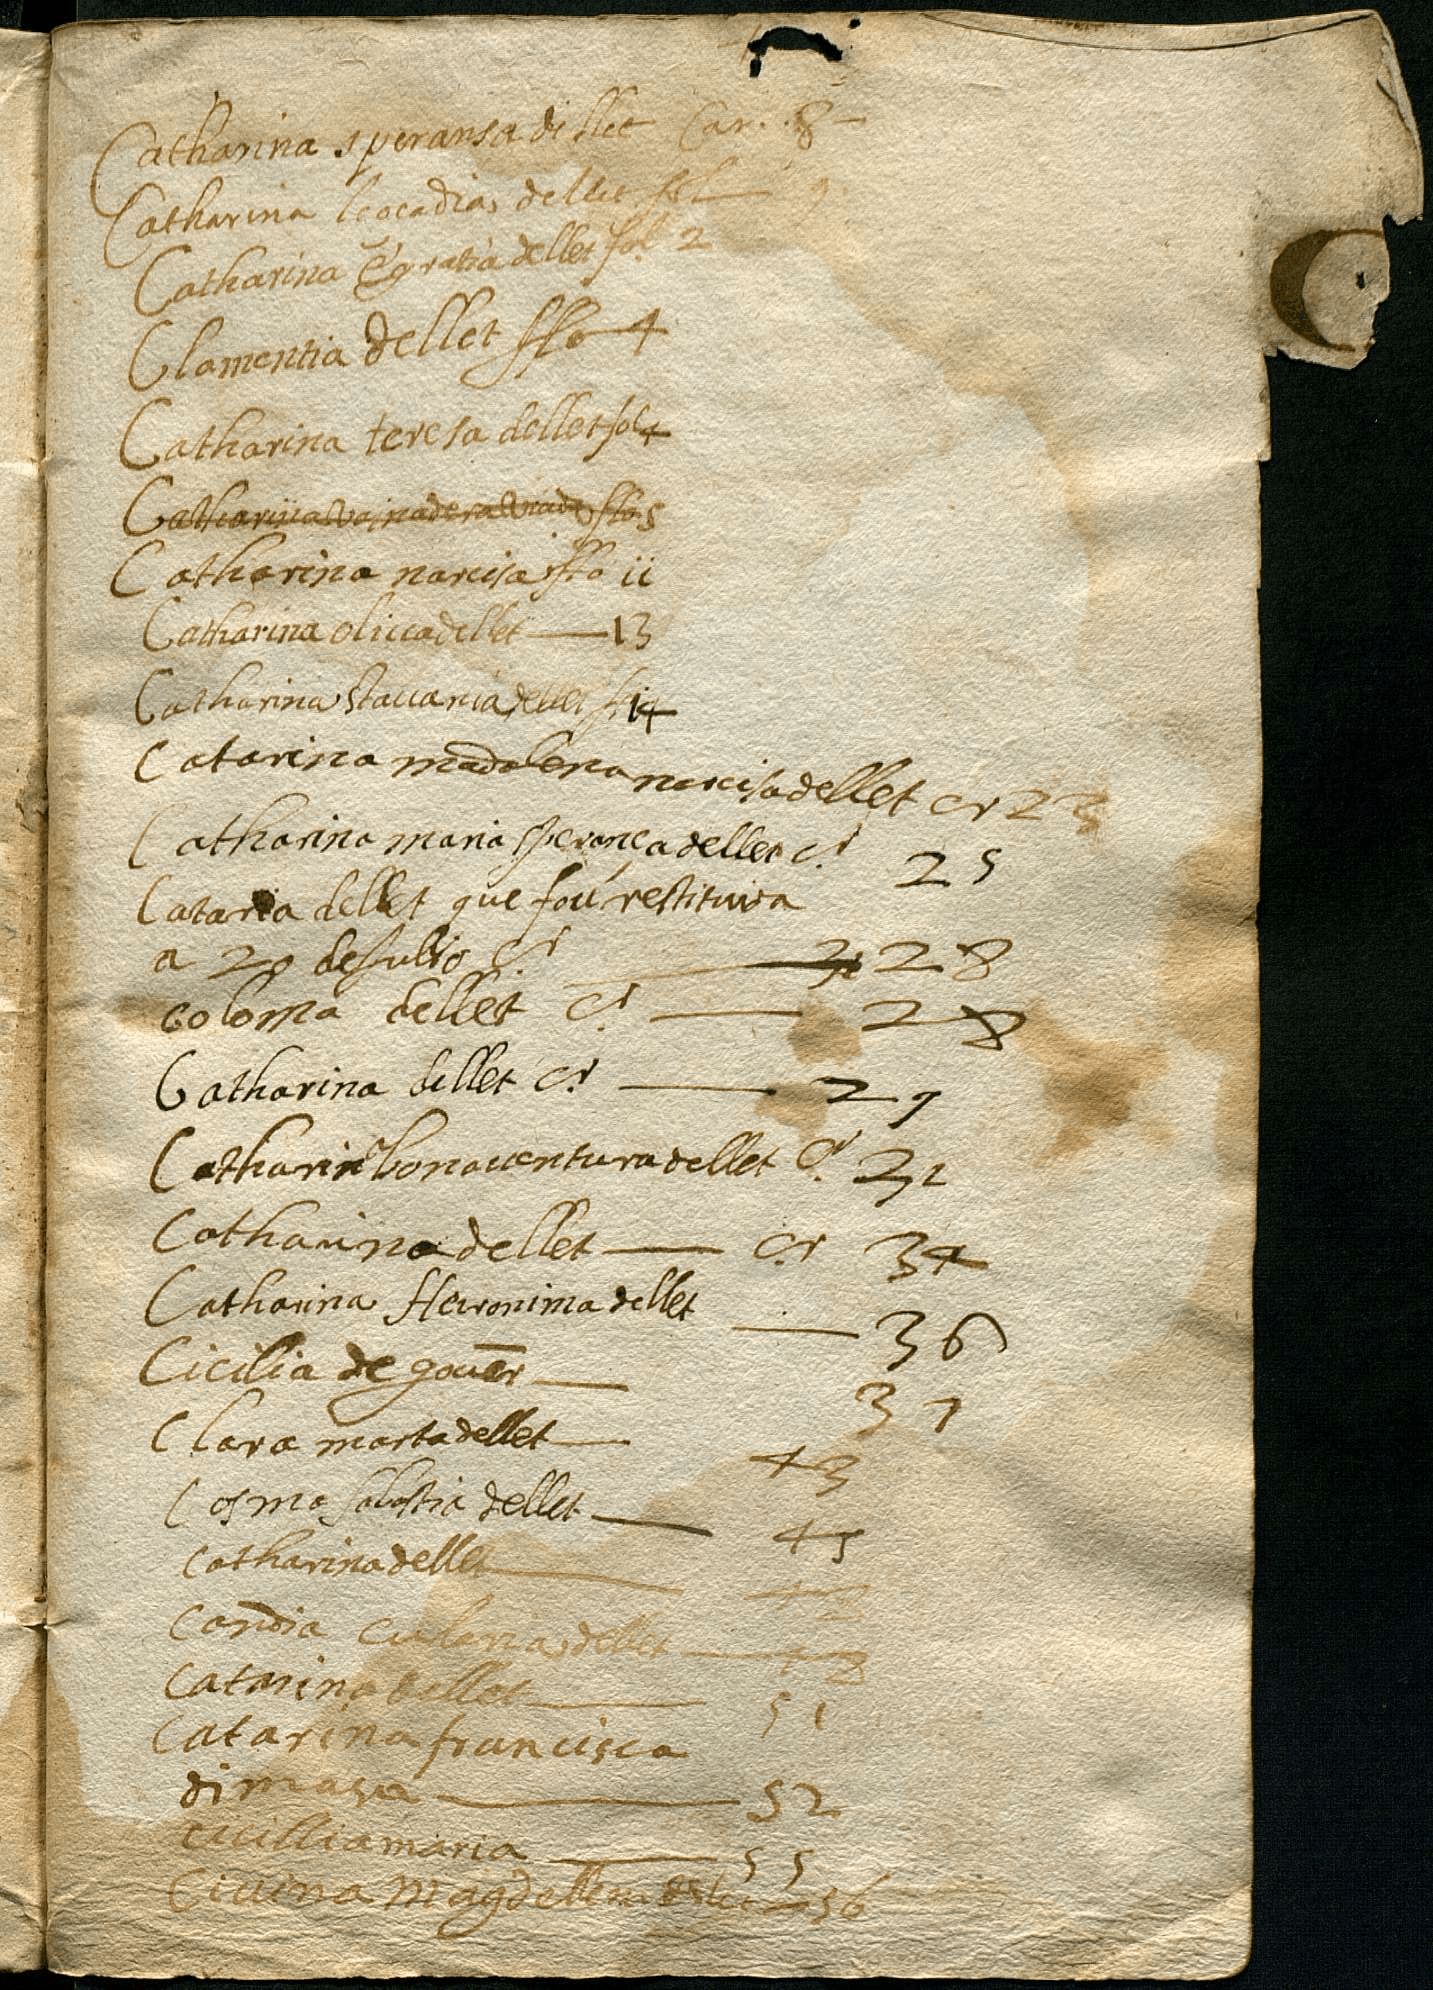 Catharina speransa di llet Car. 8
Catharina leocadia de llet fol 9
Catharina Egratia de llet fol 2
Clamentia de llet ffo 4
Catharina teresa de llet fol 4
Catharina ffo 5
Catharina narcisa ffo ii
Catharina oliua de llet 13
Catharina de llet 14
Catarina madalena narcisa de llet cr 23
Catharina maria speranca de llet cr 25
Cataria de llet que fou restituida
a 20 de Julio cr 28
coloma de llet cr 28
Catharina de llet cr 29
Catharin bonauentura de llet cr 31
Catharina de llet cr 34
Catharina Heironima de llet 36
Cicilia de gouer 37
Clara marta de llet 43
Cosma sabastia de llet 45
catharina de llet
candia de llet 48
Catarina de llet 51
Catarina francisca
di masa 52
cicillia maria 55
Magdellena 56
C